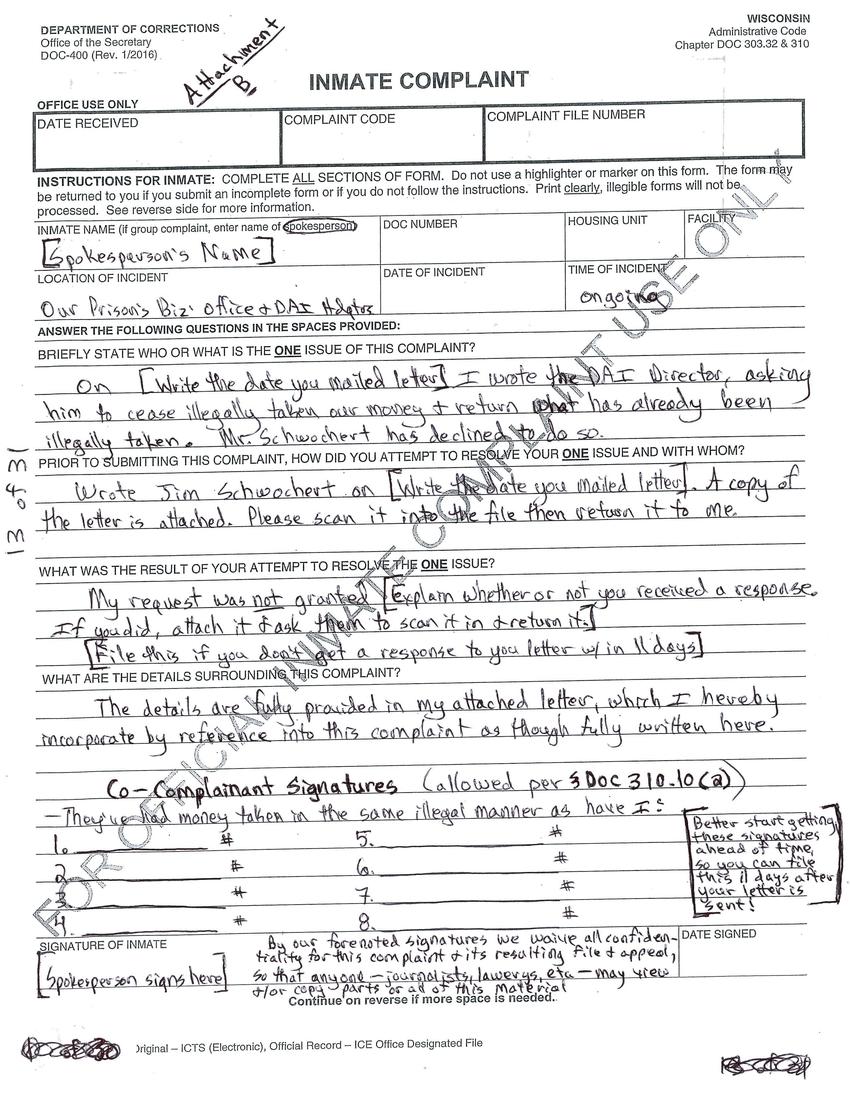 DEPARTMENT OF CORRECTIONS
Office of the Secretary
DOC-400 (Rev. 1/2016)
WISCONSIN
Administrative Code
Chapter DOC 303.32 & 310
Attachment
B.
INMATE COMPLAINT
OFFICE USE ONLY
DATE RECEIVED
COMPLAINT CODE
COMPLAINT FILE NUMBER
INSTRUCTIONS FOR INMATE: COMPLETE ALL SECTIONS OF FORM. Do not use a highlighter or marker on this form. The form may
be returned to you if you submit an incomplete form or if you do not follow the instructions. Print clearly, illegible forms will not be
processed. See reverse side for more information.
INMATE NAME (if group complaint, enter name of spokesperson)
DOC NUMBER
HOUSING UNIT
FACILITY
[Spokesperson's Name]
LOCATION OF INCIDENT
DATE OF INCIDENT
TIME OF INCIDENT
Our Prison's Biz' office & DAI Hdqtrs
ongoing
ANSWER THE FOLLOWING QUESTIONS IN THE SPACES PROVIDED:
BRIEFLY STATE WHO OR WHAT IS THE ONE ISSUE OF THIS COMPLAINT?
On [Write the date you mailed letter] I wrote the DAI Director, asking
him to cease illegally taken our money & return what has already been
illegally taken. Mr. Schwochert has declined to do so.
PRIOR TO SUBMITTING THIS COMPLAINT, HOW DID YOU ATTEMPT TO RESOLVE YOUR ONE ISSUE AND WITH WHOM?
Wrote Jim Schwochert on [Write the date you mailed letter]. A copy of
the letter is attached. Please scan it into the file then return it to me.
WHAT WAS THE RESULT OF YOUR ATTEMPT TO RESOLVE THE ONE ISSUE?
My request was not granted [Explain whether or not you received a response.
If you did, attach it & ask them to scan it in & return it.]
[File this if you don't get a response to you letter w/in 11 days]
WHAT ARE THE DETAILS SURROUNDING THIS COMPLAINT?
The details are fully provided in my attached letter, which I hereby
incorporate by reference into this complaint as though fully written here.
Co-Complainant Signatures (allowed per § DOC 310.10(2))
- They've had money taken in the same illegal manner as have I:
1. # 5. #
2. # 6. #
3. # 7. #
4. # 8. #
[Better start getting
these signatures
ahead of time,
so you can file
this 11 days after
your letter is
sent!]
SIGNATURE OF INMATE
[Spokesperson signs here]
By our forenoted signatures we waive all confiden-
tiality for this complaint & its resulting file & appeal,
so that anyone - journalists, lawerys, etc - may view
&/or copy parts or all of this material
DATE SIGNED
Continue on reverse if more space is needed.
Original – ICTS (Electronic), Official Record – ICE Office Designated File
FOR OFFICIAL INMATE COMPLAINT USE ONLY